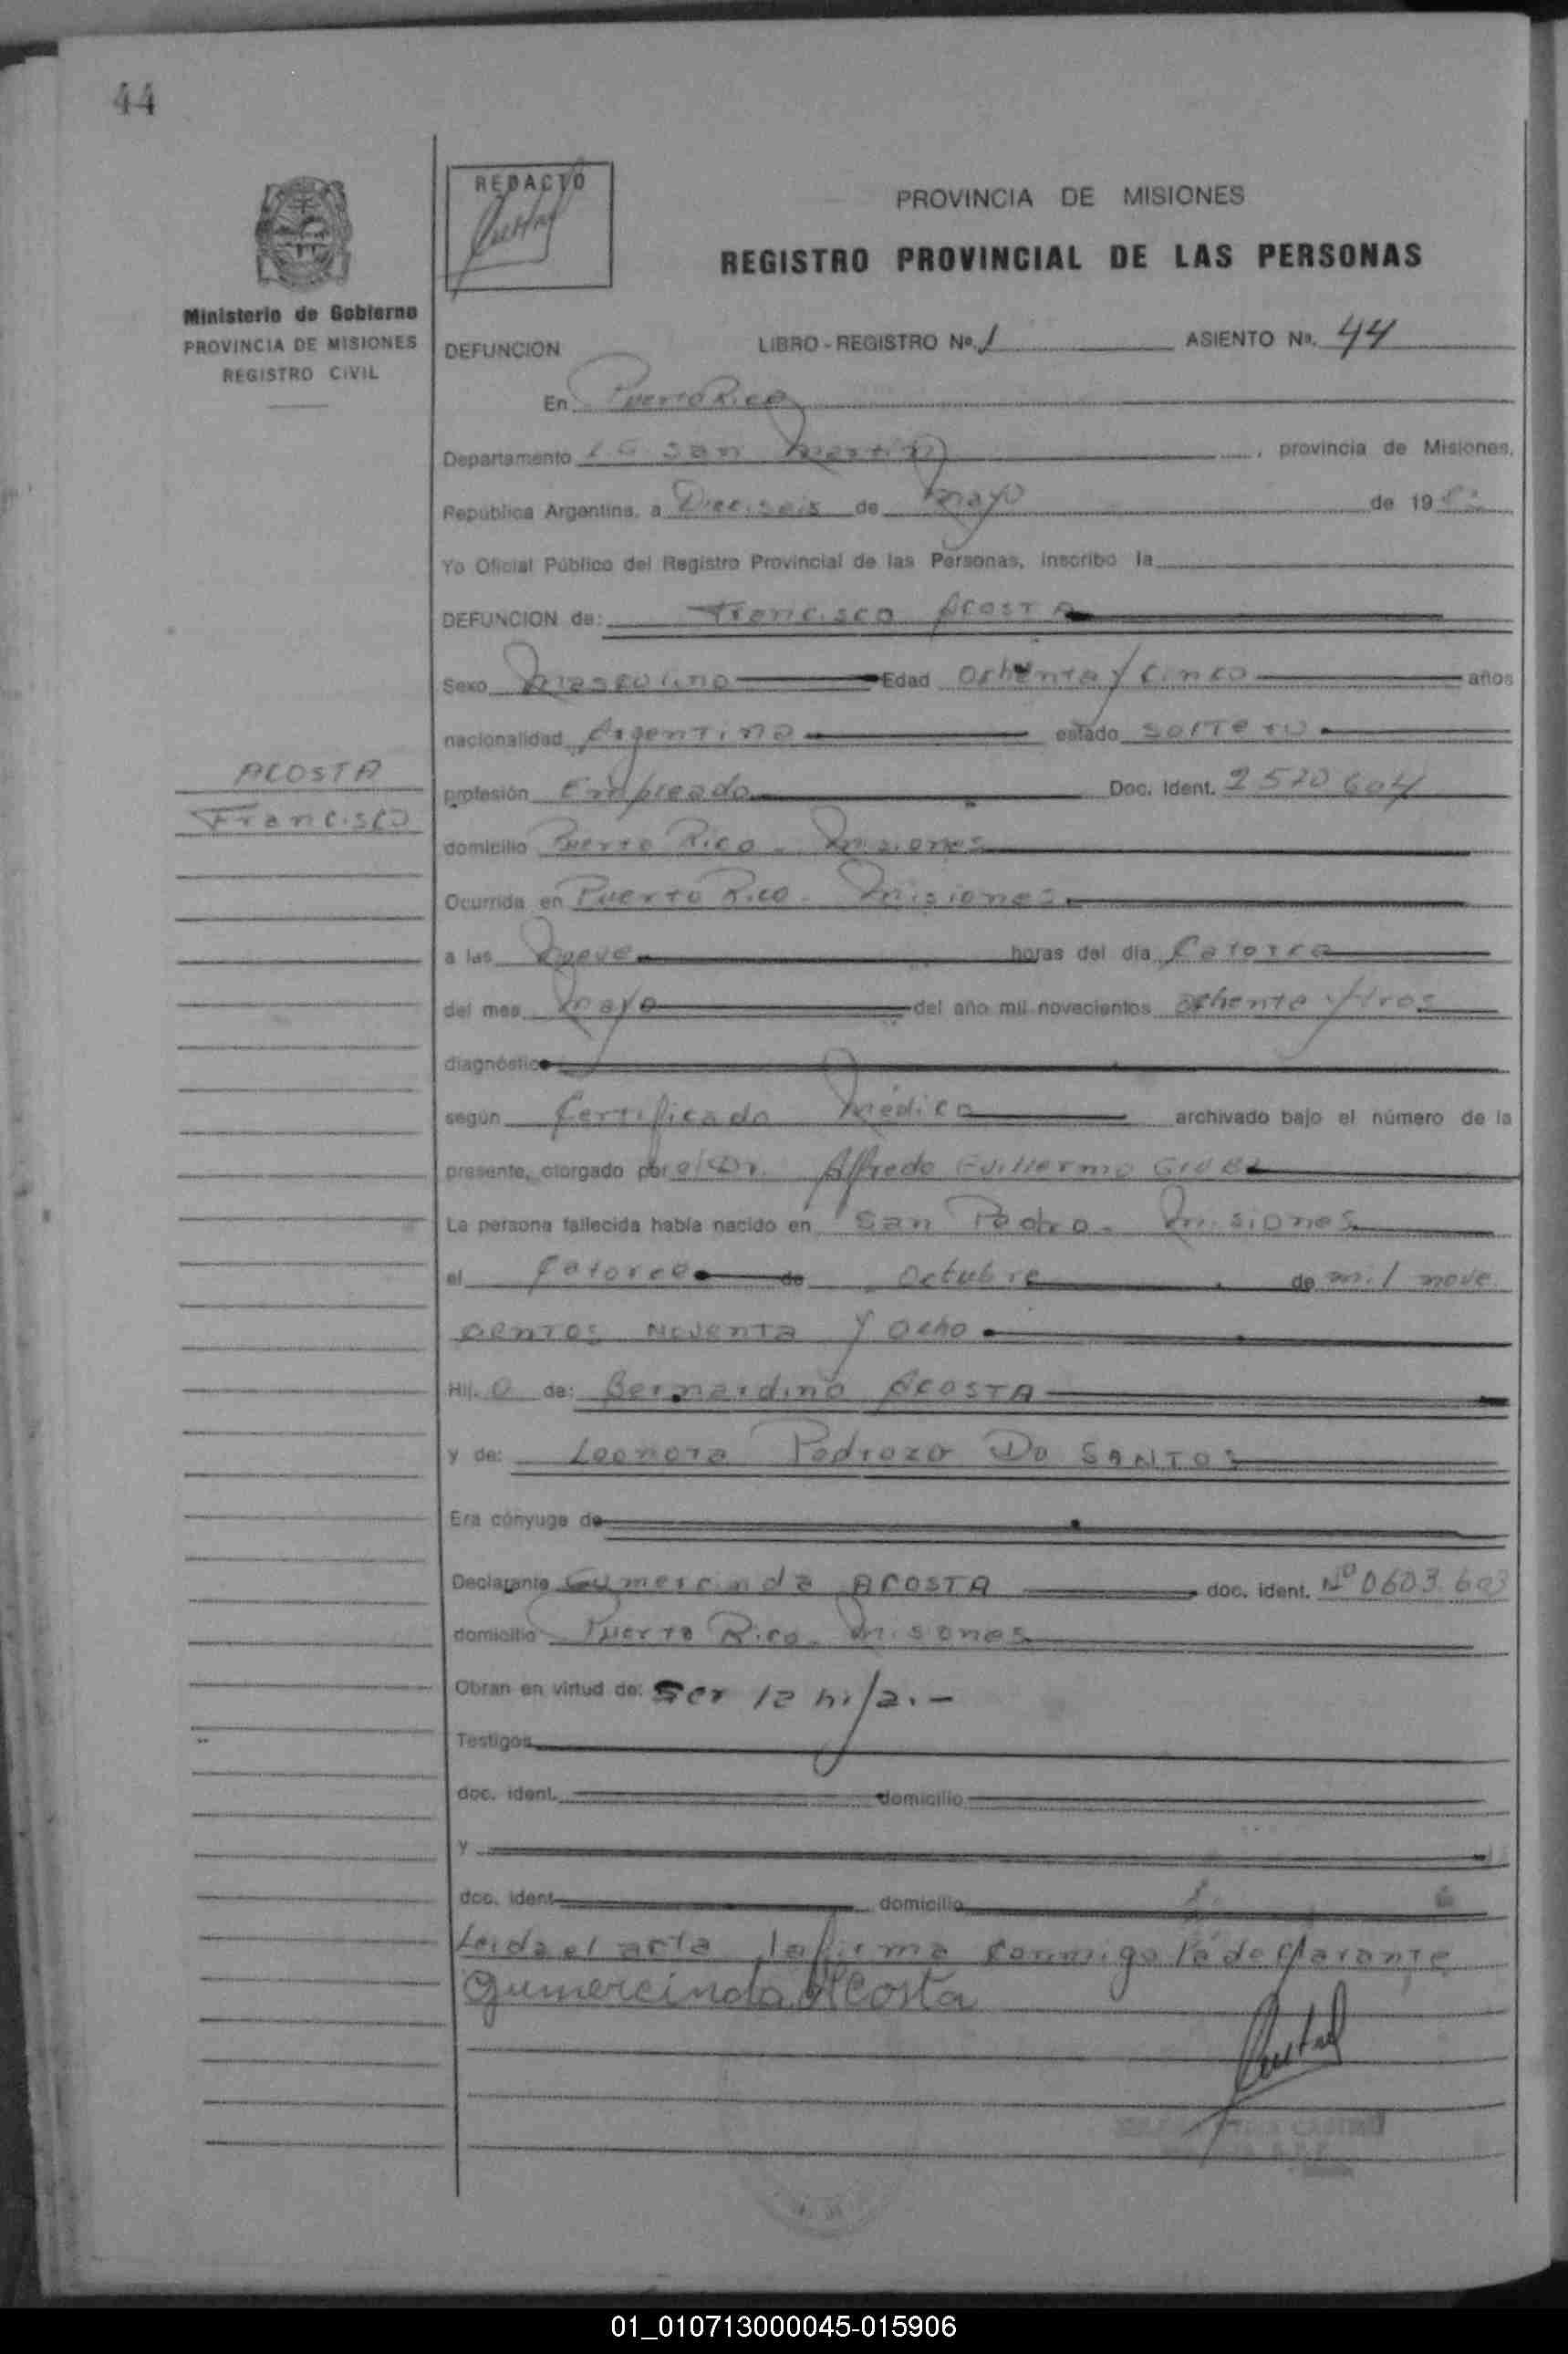 44
REDACTO
PROVINCIA DE MISIONES
REGISTRO PROVINCIAL DE LAS PERSONAS
Ministerio de Gobierno
PROVINCIA DE MISIONES
REGISTRO CIVIL
DEFUNCION LIBRO - REGISTRO Nº. 1 ASIENTO Nº. 44
En Puerto Rico
Departamento L G San Martin, provincia de Misiones,
República Argentina, a Dieciseis de mayo de 19
Yo Oficial Público del Registro Provincial de las Personas, inscribo la
DEFUNCION de: Francisco ACOSTA
Sexo masculino Edad Ochenta y Cinco años
nacionalidad Argentina estado Soltero
ACOSTA
Francisco
profesión Empleado Doc. Ident. 2570604
domicilio Puerto Rico - Misiones
Ocurrida en Puerto Rico - Misiones
a las nueve horas del día Catorce
del mes mayo del año mil novecientos ochenta y tres
diagnóstico
según Certificado Médico archivado bajo el número de la
presente, otorgado por el Dr. Alfredo Guillermo
La persona fallecida había nacido en San Pedro - Misiones
el Catorce de Octubre de mil nove
cientos Noventa y ocho
Hij o de: Bernardino ACOSTA
y de: Leonora Pedrozo Do SANTOS
Era cónyuge de
Declarante Gumercinda ACOSTA doc. ident. Nº 0603.603
domicilio Puerto Rico - Misiones
Obran en virtud de: Ser la hija. -
Testigos
doc. ident. domicilio
y
doc. ident. domicilio
Leida el acta la firma conmigo la declarante
Gumercinda Acosta
01_010713000045-015906